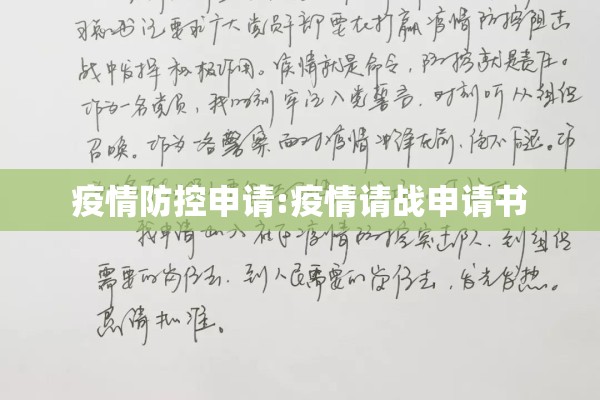 习总书记要求广大党员干部要在打赢疫情防控阻击
战中发挥积极作用。疫情就是命令，防控就是责任。
作为一名党员，我时刻牢记入党誓言，时刻听从组织
召唤。作为一名警察，面对疫情冲锋在前，绝不后退。
疫情防控申请:疫情请战申请书
我申请加入在民疫情防控突击队，到组织
需要的岗位去，到人民需要的岗位去，发光发热。
恳请批准。